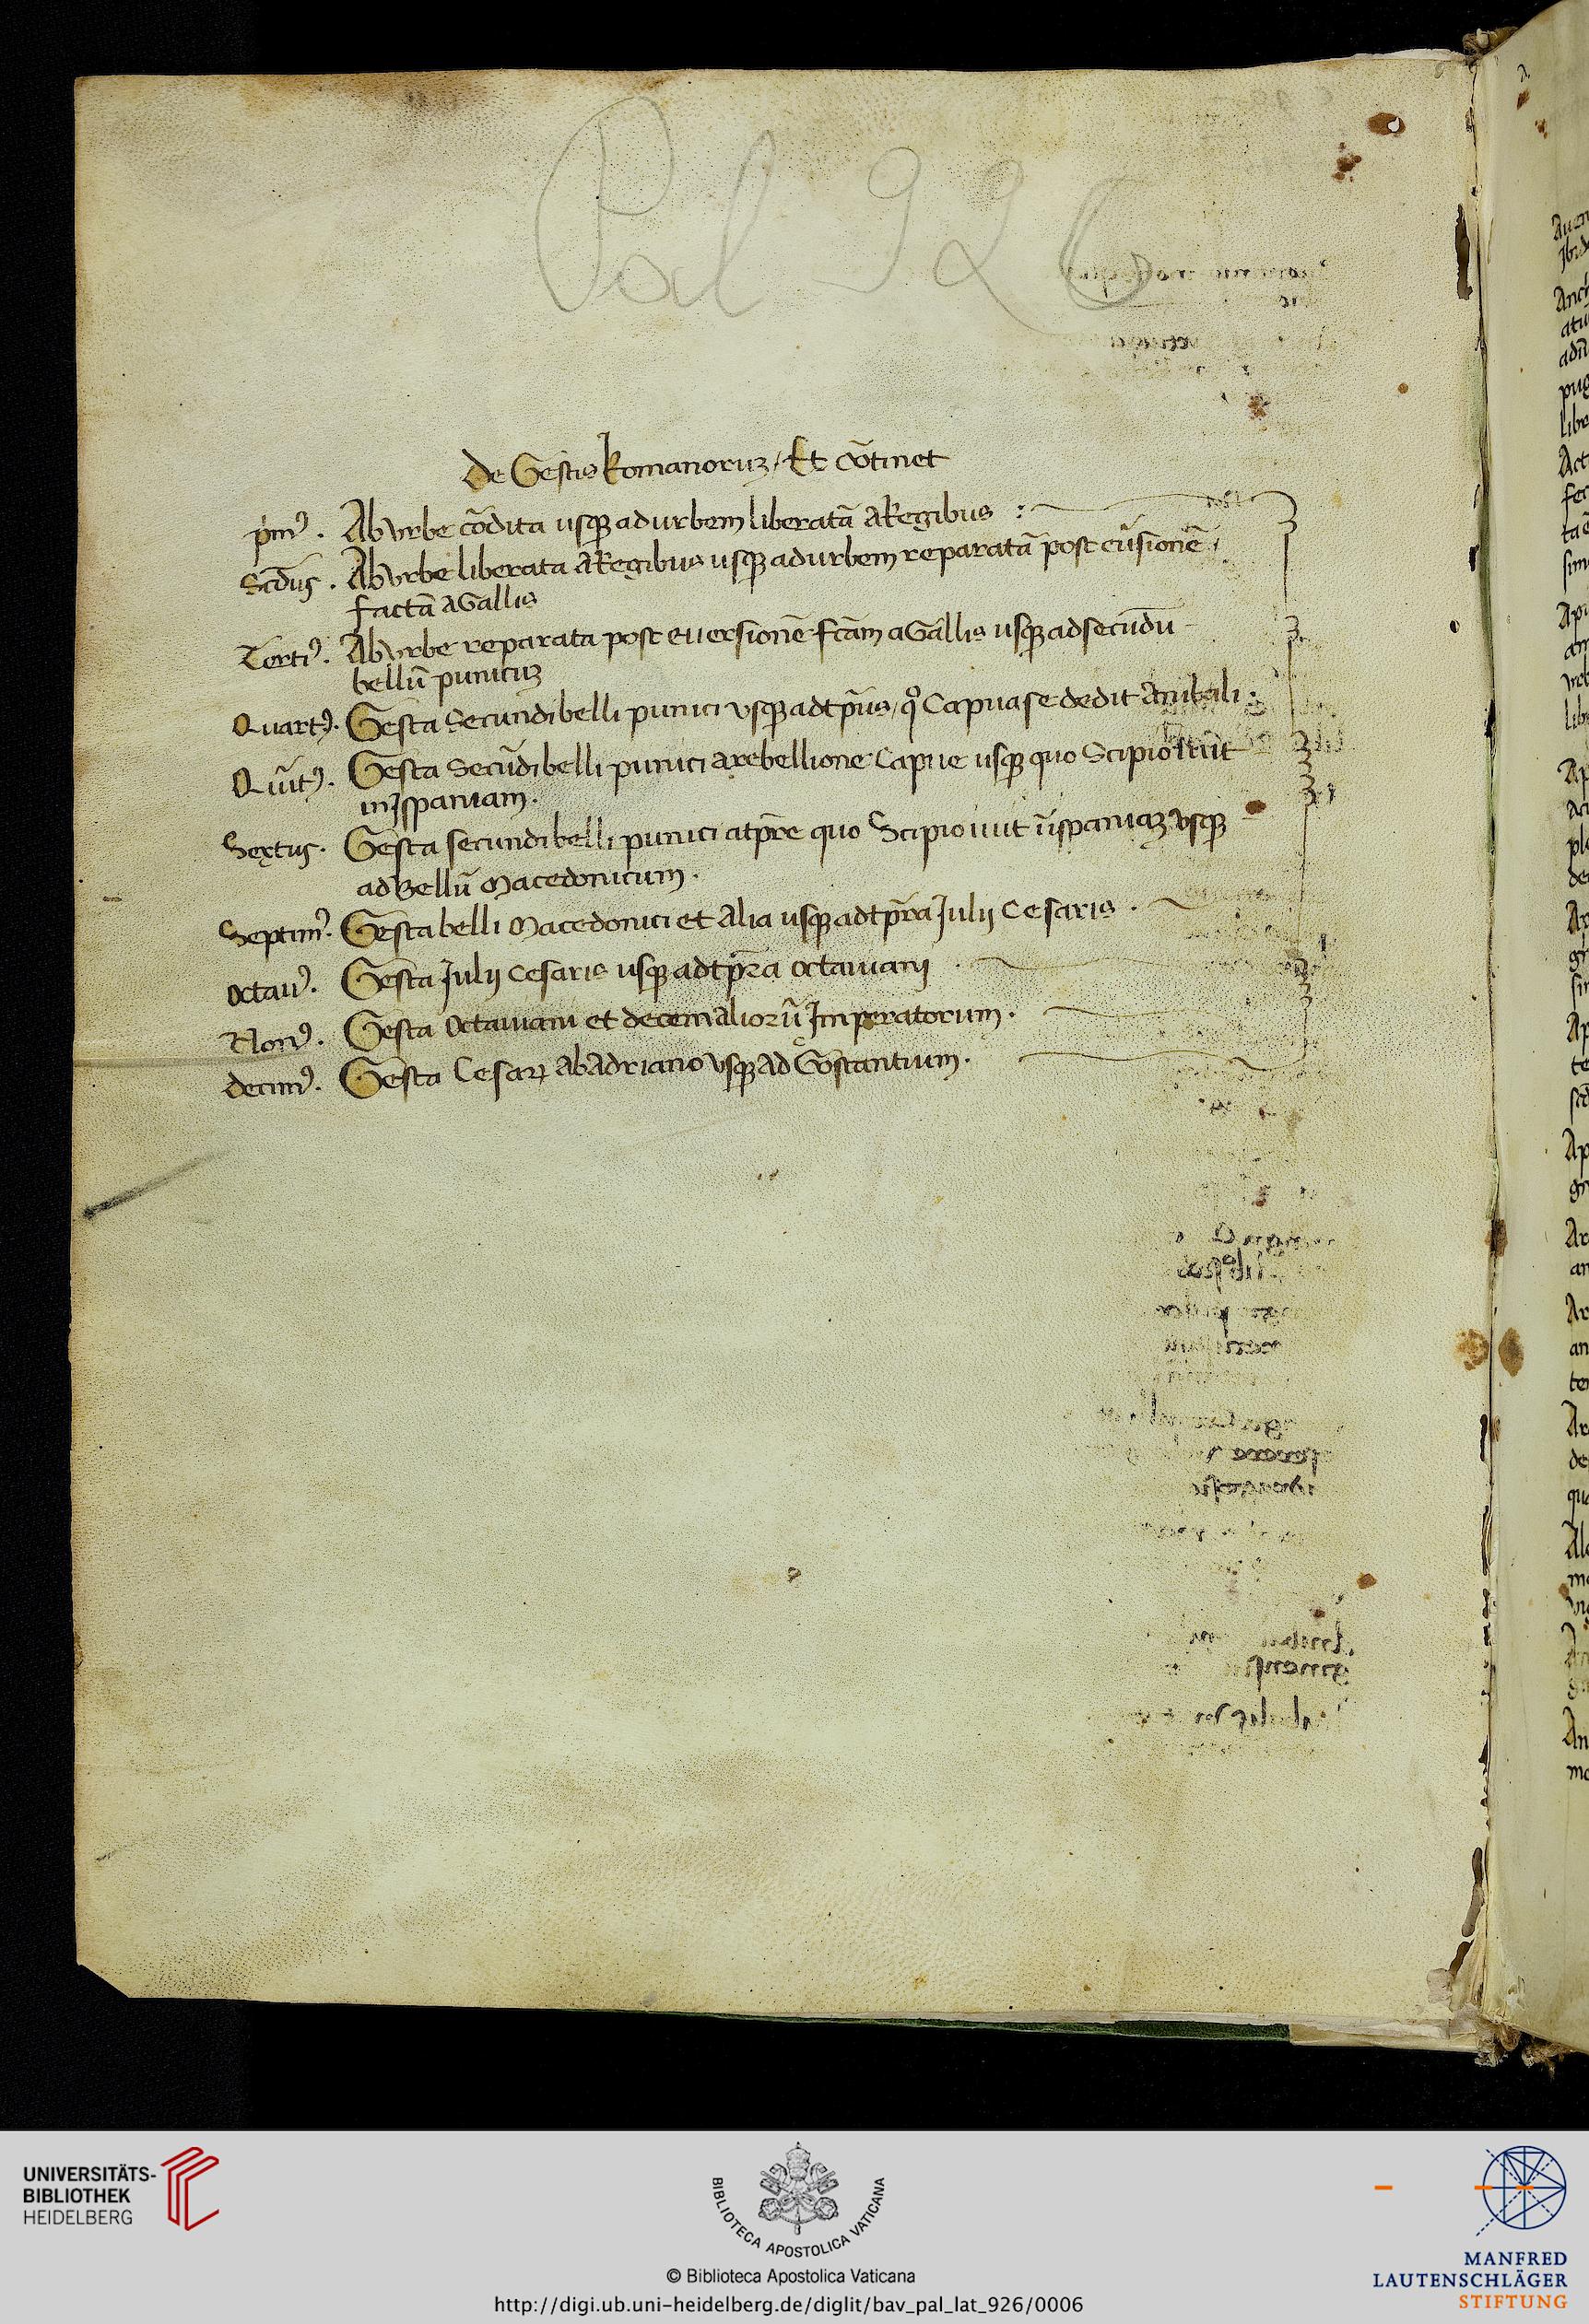 Pal 926
De Gestis Romanoruʒ / Et cōtinet
pim⁹ . Ab vrbe cōdita usqꝫ ad urbem liberatā a Regibus :
Scd̄us . Ab vrbe liberata a Regibus usqꝫ ad urbem reparatā post eūsionē
factā a Gallis
Terti⁹ . Ab vrbe reparata post euersionē fcām a Gallis usqꝫ ad secūdū
bellū punicuʒ
Quart⁹ . Gesta Secundi belli punici vsqꝫ ad tp̄us / qͦ Capua se dedit Anibali .
Quīt⁹ . Gesta Secūdi belli punici a rebellione Capue usqꝫ quo Scipio iuit
in Jspaniam .
Sextus . Gesta secundi belli punici a tp̄re quo Scipio iuit ī ispaniaʒ vsqꝫ
ad Bellū Macedonicum .
Septim⁹ . Gesta belli Macedonici et alia usqꝫ ad tp̄ra Julij Cesaris .
Octau⁹ . Gesta Julij Cesaris usqꝫ ad tp̄ra Octauiani .
Non⁹ . Gesta Octauiani et decem aliorū Imperatorum .
decim⁹ . Gesta Cesaꝝ ab Adriano vsqꝫ ad Cōstantium .
UNIVERSITÄTS-
BIBLIOTHEK
HEIDELBERG
BIBLIOTECA APOSTOLICA VATICANA
© Biblioteca Apostolica Vaticana
http://digi.ub.uni-heidelberg.de/diglit/bav_pal_lat_926/0006
MANFRED
LAUTENSCHLÄGER
STIFTUNG